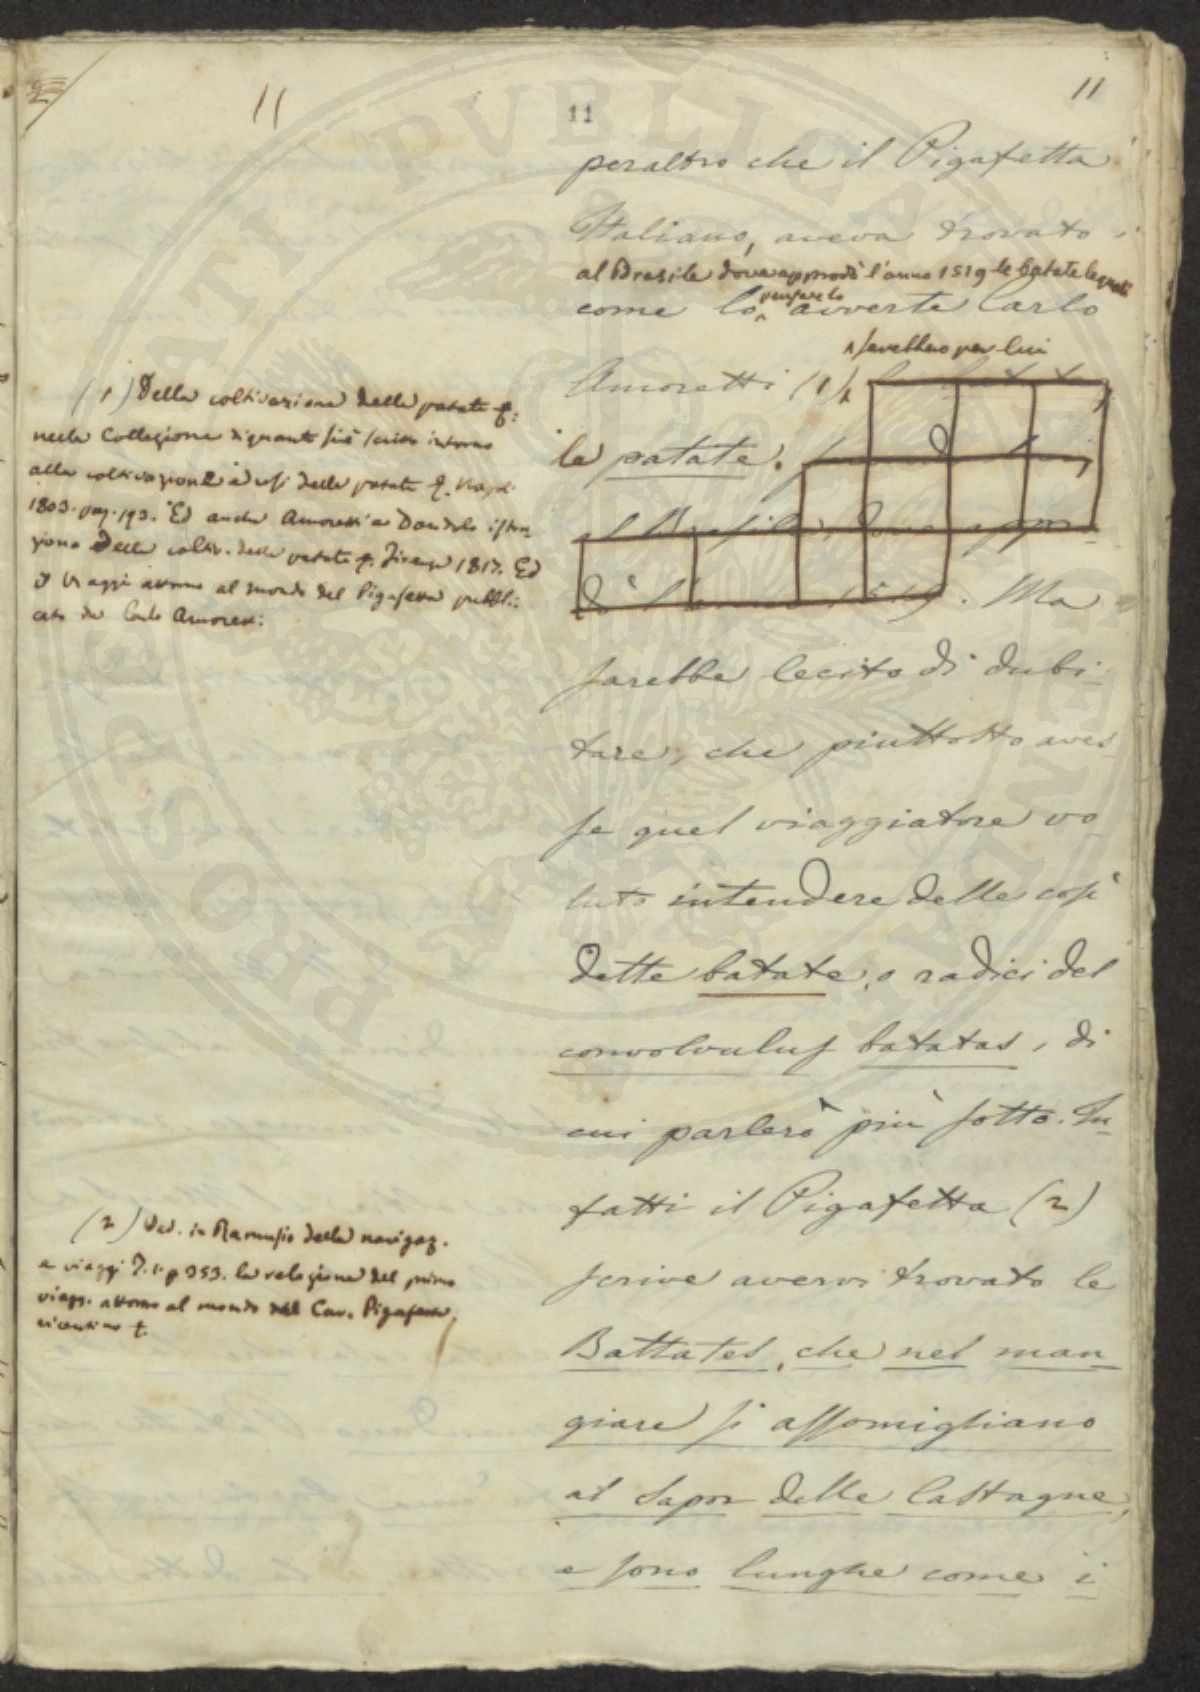 11
11
11
peraltro che il Pigafetta
Italiano, aveva trovato
al Brasile dove approdò l'anno 1519 le batate le quali
come lo pensare lo avverte Carlo
sarebbero per lui
Amoretti (1)
le patate.
al Brasile, dove appro-
dò l'anno 1519. Ma
sarebbe lecito di dubi-
tare, che piuttosto aves
se quel viaggiatore vo-
luto intendere delle così
dette batate, o radici del
convolvulus batatas, di
cui parlerò più sotto. In-
fatti il Pigafetta (2)
scrive avervi trovato le
Battates, che nel man
giare si assomigliano
al sapor delle Castagne,
e sono lunghe come i
(1) Della coltivazione delle patate &:
nella Collezione di quanto si è scritto intorno
alla coltivazione e usi delle patate &. Napoli
1803. pag. 193. Ed anche Amoretti e Dandolo istru-
zione delle coltiv. delle patate &. Firenze 1817. Ed
i Viaggi attorno al mondo del Pigafetta pubbli-
cato da Carlo Amoretti.
(2) Ved. in Ramusio delle navigaz.
e viaggi T. 1. p 353. la relazione del primo
viagg. attorno al mondo del Cav. Pigafetta,
vicentino &.
PROSTATI PVBLICA COMMODA